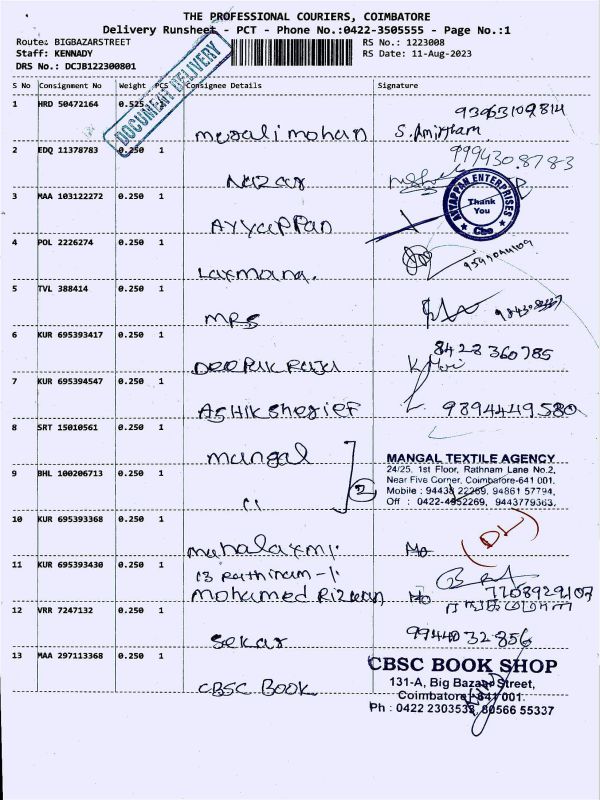 THE PROFESSIONAL COURIERS, COIMBATORE
Delivery Runsheet - PCT - Phone No.:0422-3505555 - Page No.:1
Route: BIGBAZARSTREET
RS No.: 1223008
Staff: KENNADY
RS Date: 11-Aug-2023
DRS No.: DCJB122300801
DOCUMENT DELIVERY
S No Consignment No Weight PCS Consignee Details Signature
1 HRD 50472164 0.525
9363109814
muralimohan S. Amirtham
2 EDQ 11378783 0.250 1
9994308783
Nazar
3 MAA 103122272 0.250 1
AYYAPPAN ENTERPRISES
Thank You
Cbe
Ayyappan
4 POL 2226274 0.250 1
Laxmana.
5 TVL 388414 0.250 1
MRS
6 KUR 695393417 0.250 1
8428360785
Deepuk Raju K
7 KUR 695394547 0.250 1
Ashik Sherief 9894449580
8 SRT 15010561 0.250 1
mangal
MANGAL TEXTILE AGENCY
24/25, 1st Floor, Rathnam Lane No.2,
9 BHL 100206713 0.250 1
Near Five Corner, Coimbatore-641 001.
2
Mobile : 94438 22269, 94861 57794,
11
Off : 0422-4952269, 9443779363,
10 KUR 695393368 0.250 1
(DL)
mahalaxmi
11 KUR 695393430 0.250 1
13 Rathinam-1
mohamed Rizwan 7708929107
12 VRR 7247132 0.250 1
9944032856
Sekar
13 MAA 297113368 0.250 1
CBSC BOOK SHOP
131-A, Big Bazaar Street,
CBSC BOOK
Coimbatore - 641 001.
Ph : 0422 2303533, 80566 55337